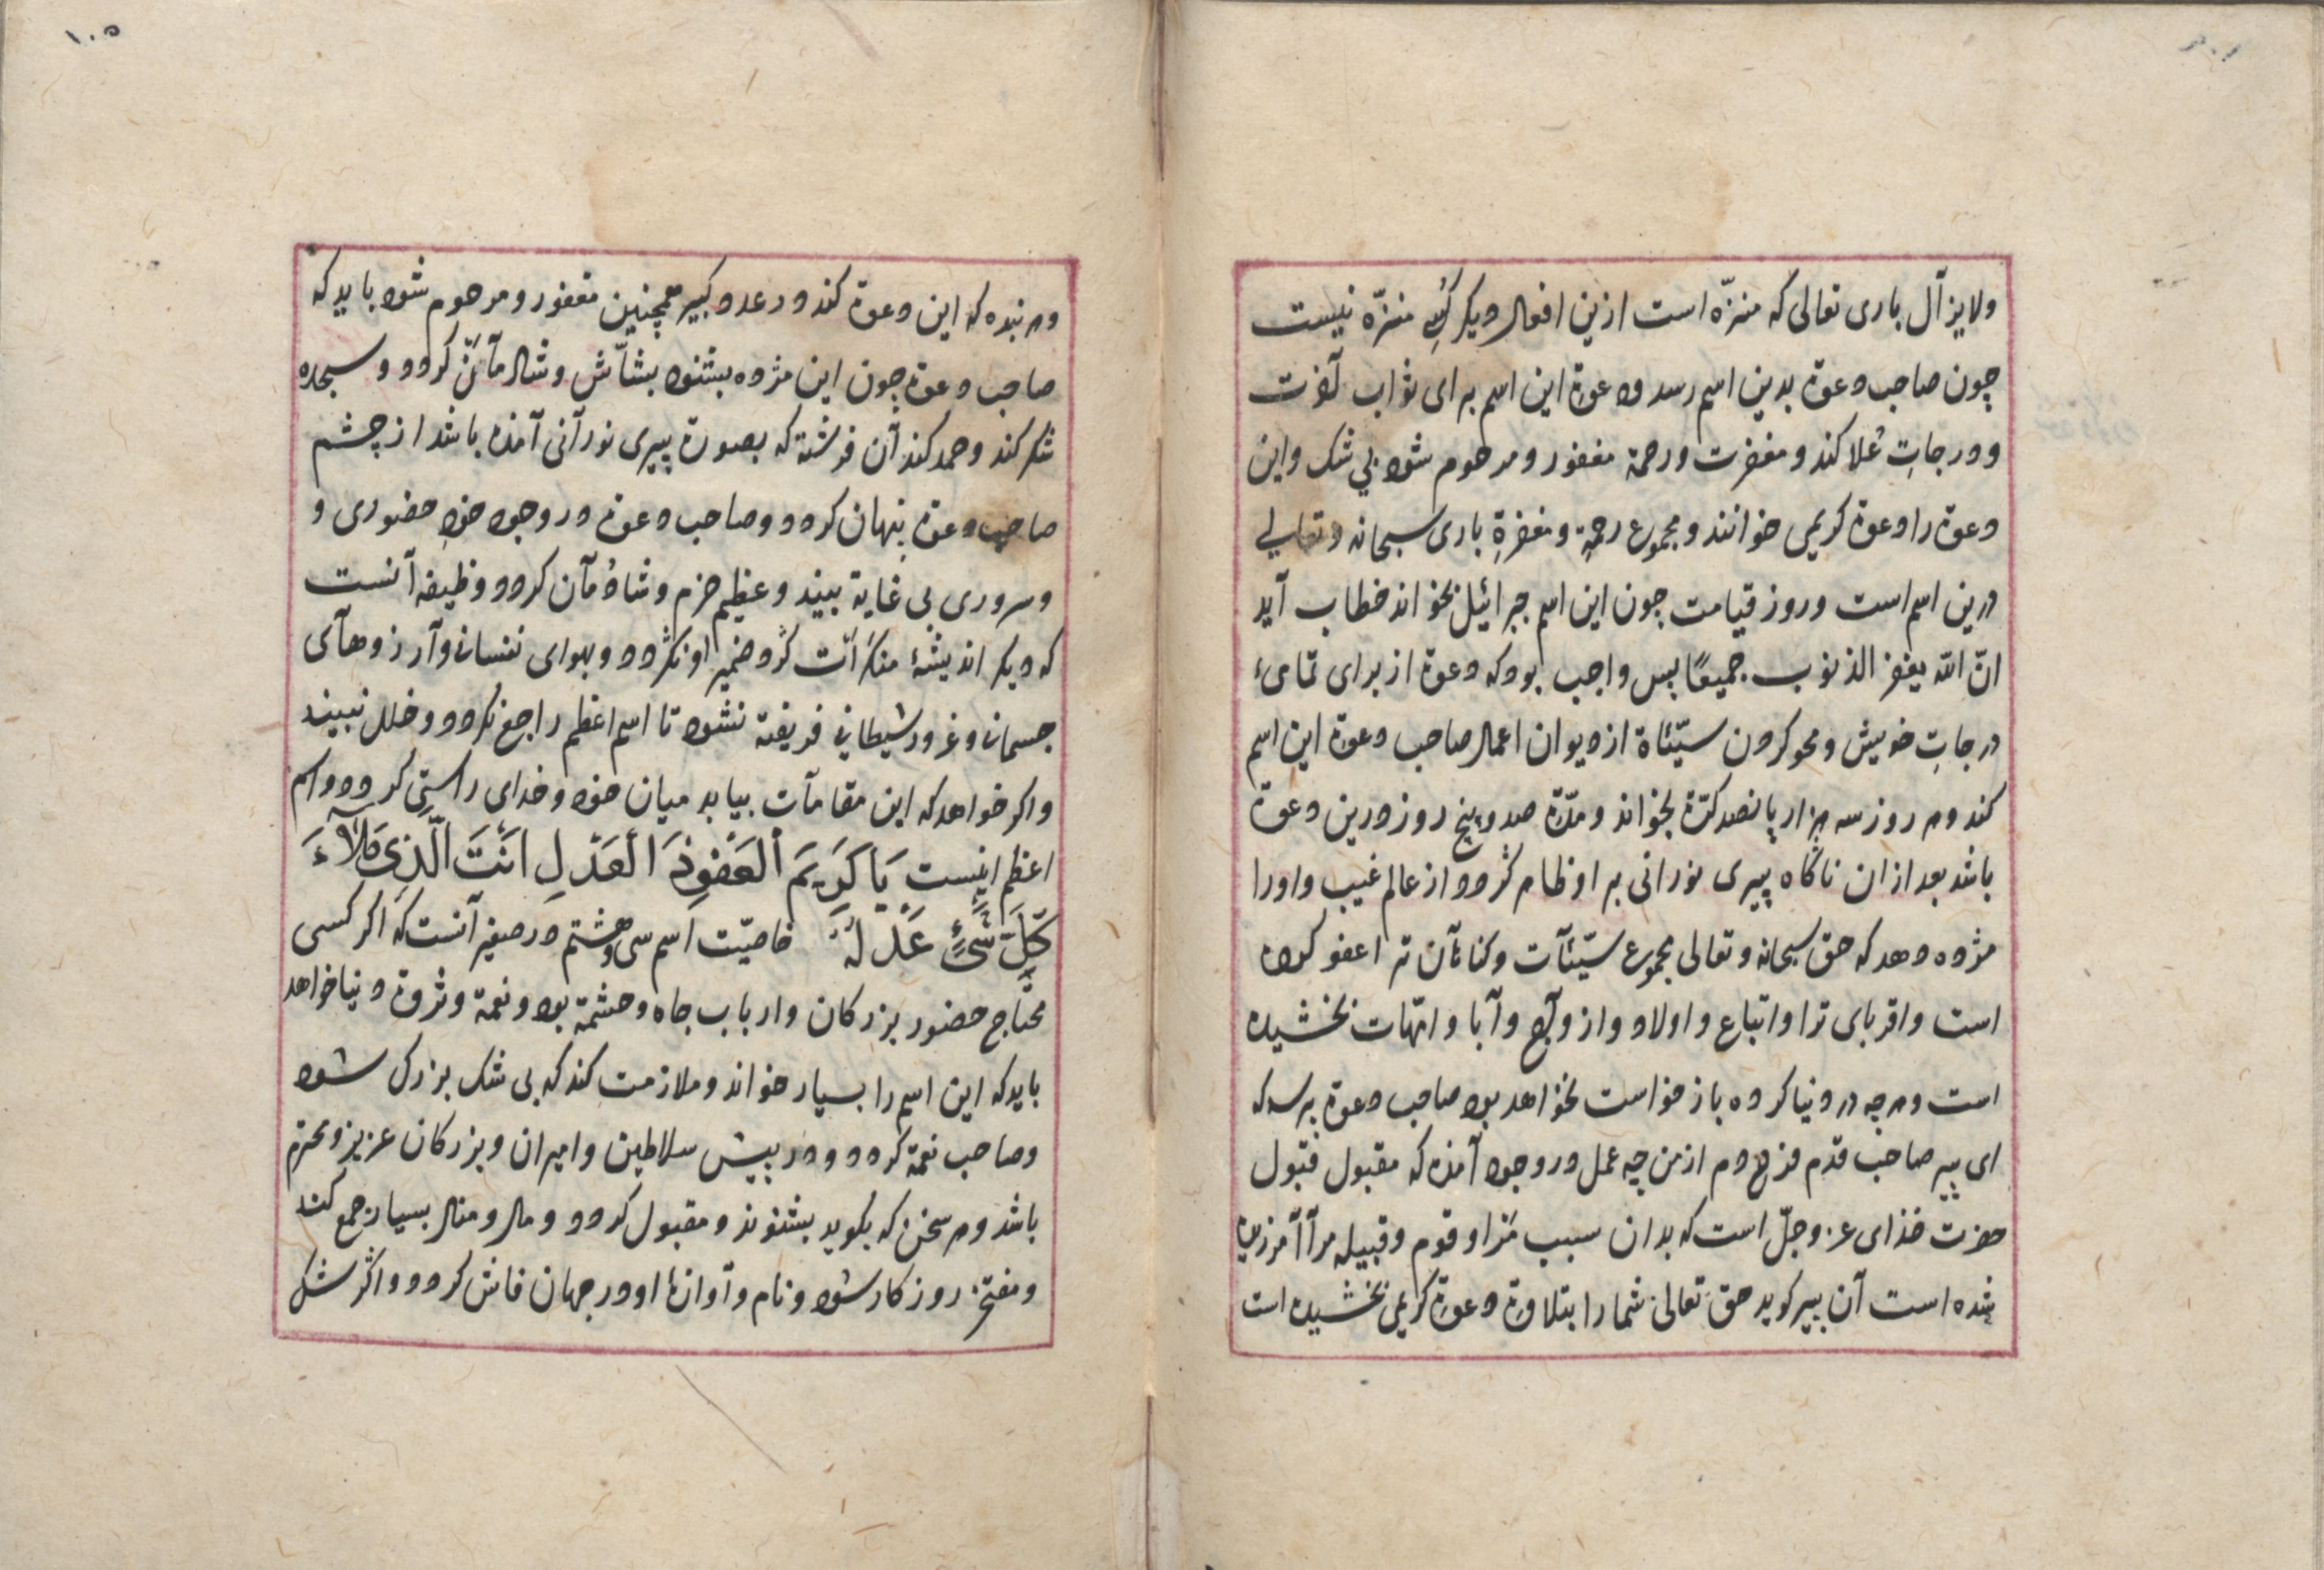 ولایزآل باری تعالی که منزّه است ازین افعال ودیکر کسِ منزّه نیست
چون صاحب دعوة بدین اسم رسد ودعوة این اسم برای ثواب آخرت
ودرجاتِ عُلا کند ومغفرت ورحمة مغفور ومرحوم شود بی شک واین
دعوة را دعوة کریمی خوانند ومجموع رحمةِ ومغفرةِ باری سبحانه وتعالی
درین اسم است وروز قیامت چون این اسم جبرائیل بخواند خطاب آید
انّ الله یغفر الذنوب جمیعًا پس واجب بود که دعوة از برای تمامئ
درجاتِ خویش ومحو کردن سیّئاة از دیوان اعمال صاحب دعوة این اسم
کند وهر روز سه هزار پانصد کرّة بخواند ومدّة صد وپنج روز درین دعوة
باشد بعد ازان ناکاه پیری نورانی بر او ظاهر کردد از عالم غیب واورا
مژده دهد که حق سبحانه وتعالی مجموع سیّئآت وکناهآن ترا عفو کرده
است واقربای ترا واتباع واولاد وازوآج وآبا وامّهات بخشیده
است وهرچه در دنیا کرده باز خواست نخواهد بود صاحب دعوة پرسد که
ای پیر صاحب قدم فرخ دم از من چه عمل در وجود آمده که مقبول قبول
حضرت خدای عزوجلّ است که بدان سبب مرا وقوم وقبیله مرآ آمرزیده
شده است آن پیر کوید حق تعالی شما را بتلاوة دعوة کریمی بخشیده است
۱۰۵
وهر بنده که این دعوة کند در عدد کبیر همچنین مغفور ومرحوم شود باید که
صاحب دعوة چون این مژده بشنود بشآش وشادمآن کردد وسجده
شکر کند وحمد کند آن فرشته که بصورة پیری نورآنی آمده باشد از چشم
صاحب دعوة پنهان کردد وصاحب دعوة در وجود خودِ حضوری و
وسروری بی غایة بیند وعظیم خرم وشادمآن کردد وظیفه آنست
که دیکر اندیشهٔ منکرات کرد ضمیر او نکردد وبهوای نفسانی وآرزوهآی
جسمانی وغرور شیطانی فریفته نشود تا اسم اعظم راجع نکردد وخلل نبیند
واکر خواهد که این مقامآت بیابد میان خود وخدای راستِی کردد واسم
اعظم اینست یَا کَرِیمَ الْعَفْوِذَ الْعَدْلِ اَنْتَ الَّذِی مَلَأَ
کُلَّ شَیْءٍ عَدْلُهُ خاصیّت اسم سی وهشتم در صغیر آنست که اکر کسی
محتاج حضور بزرکان وارباب جاه وحشمة بود ونعمة وثروة دنیا خواهد
باید که این اسم را بسیار خواند وملازمت کند که بی شک بزرک شود
وصاحب نعمة کردد ودر پیش سلاطین وامیران وبزرکان عزیز ومحترم
باشد وهر سخن که بکوید بشنوند ومقبول کردد ومال ومنال بسیار جمع کند
ومفتخر روزکار شود ونام وآوازهٔ او در جهان فاش کردد واکر شک